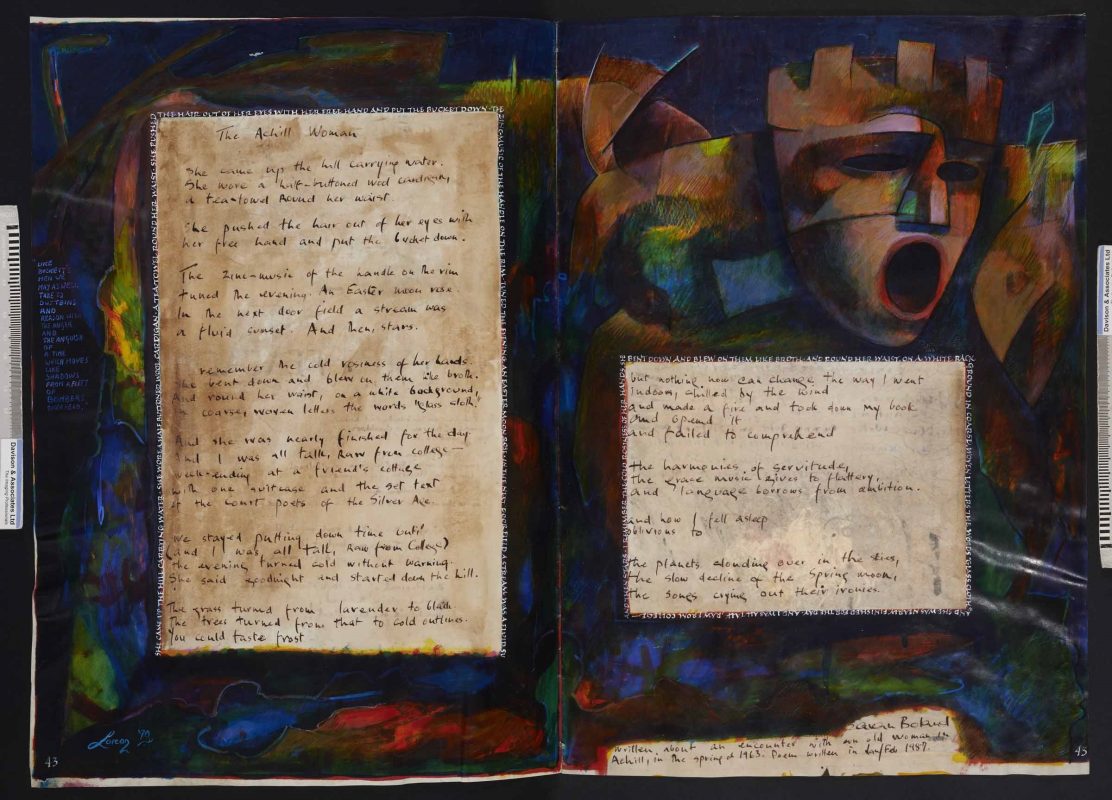 The Achill Woman
She came up the hill carrying water.
She wore a half-buttoned wool cardigan,
a tea-towel round her waist.
She pushed the hair out of her eyes with
her free hand and put the bucket down.
The zinc-music of the handle on the rim
tuned the evening. An Easter moon rose.
In the next door field a stream was
a fluid sunset. And then, stars.
remember the cold rosiness of her hands.
She bent down and blew on them like broth.
And round her waist, on a white background,
in coarse, woven letters the words "glass cloth".
And she was nearly finished for the day
And I was all talk, Raw from college—
week-ending at a friend's cottage
with one suitcase and the set text
of the Court poets of the Silver Age.
we stayed putting down time until
(and I was, all talk, Raw from College)
the evening turned cold without warning.
She said goodnight and started down the hill.
The grass turned from lavender to black
The trees turned from that to cold outlines.
You could taste frost
but nothing now can change the way I went
indoors, chilled by the wind
and made a fire and took down my book
and opened it
and failed to comprehend
the harmonies of servitude,
the grace music gives to flattery,
and language borrows from ambition.
and how I fell asleep
oblivious to
the planets clouding over in the skies,
the slow decline of the Spring moon,
the songs crying out their ironies.
Eavan Boland
written, about an encounter with an old woman in
Achill, in the spring of 1963. Poem written in Jan/Feb 1987.
THE HAIR OUT OF HER EYES WITH HER FREE HAND AND PUT THE BUCKET DOWN. THE
BENT DOWN AND BLEW ON THEM LIKE BROTH. AND ROUND HER WAIST, ON A WHITE BACK
LIKE
BECKETT'S
MEN WE
MAY AS WELL
TALK TO
DUSTBINS
AND
REASON WITH
THE ANGER
AND
THE ANGUISH
OF
A TIME
WHICH MOVES
LIKE
SHADOWS
FROM A FLEET
OF
BOMBERS
OVERHEAD.
43
45
Davison & Associates Ltd
Davison & Associates Ltd